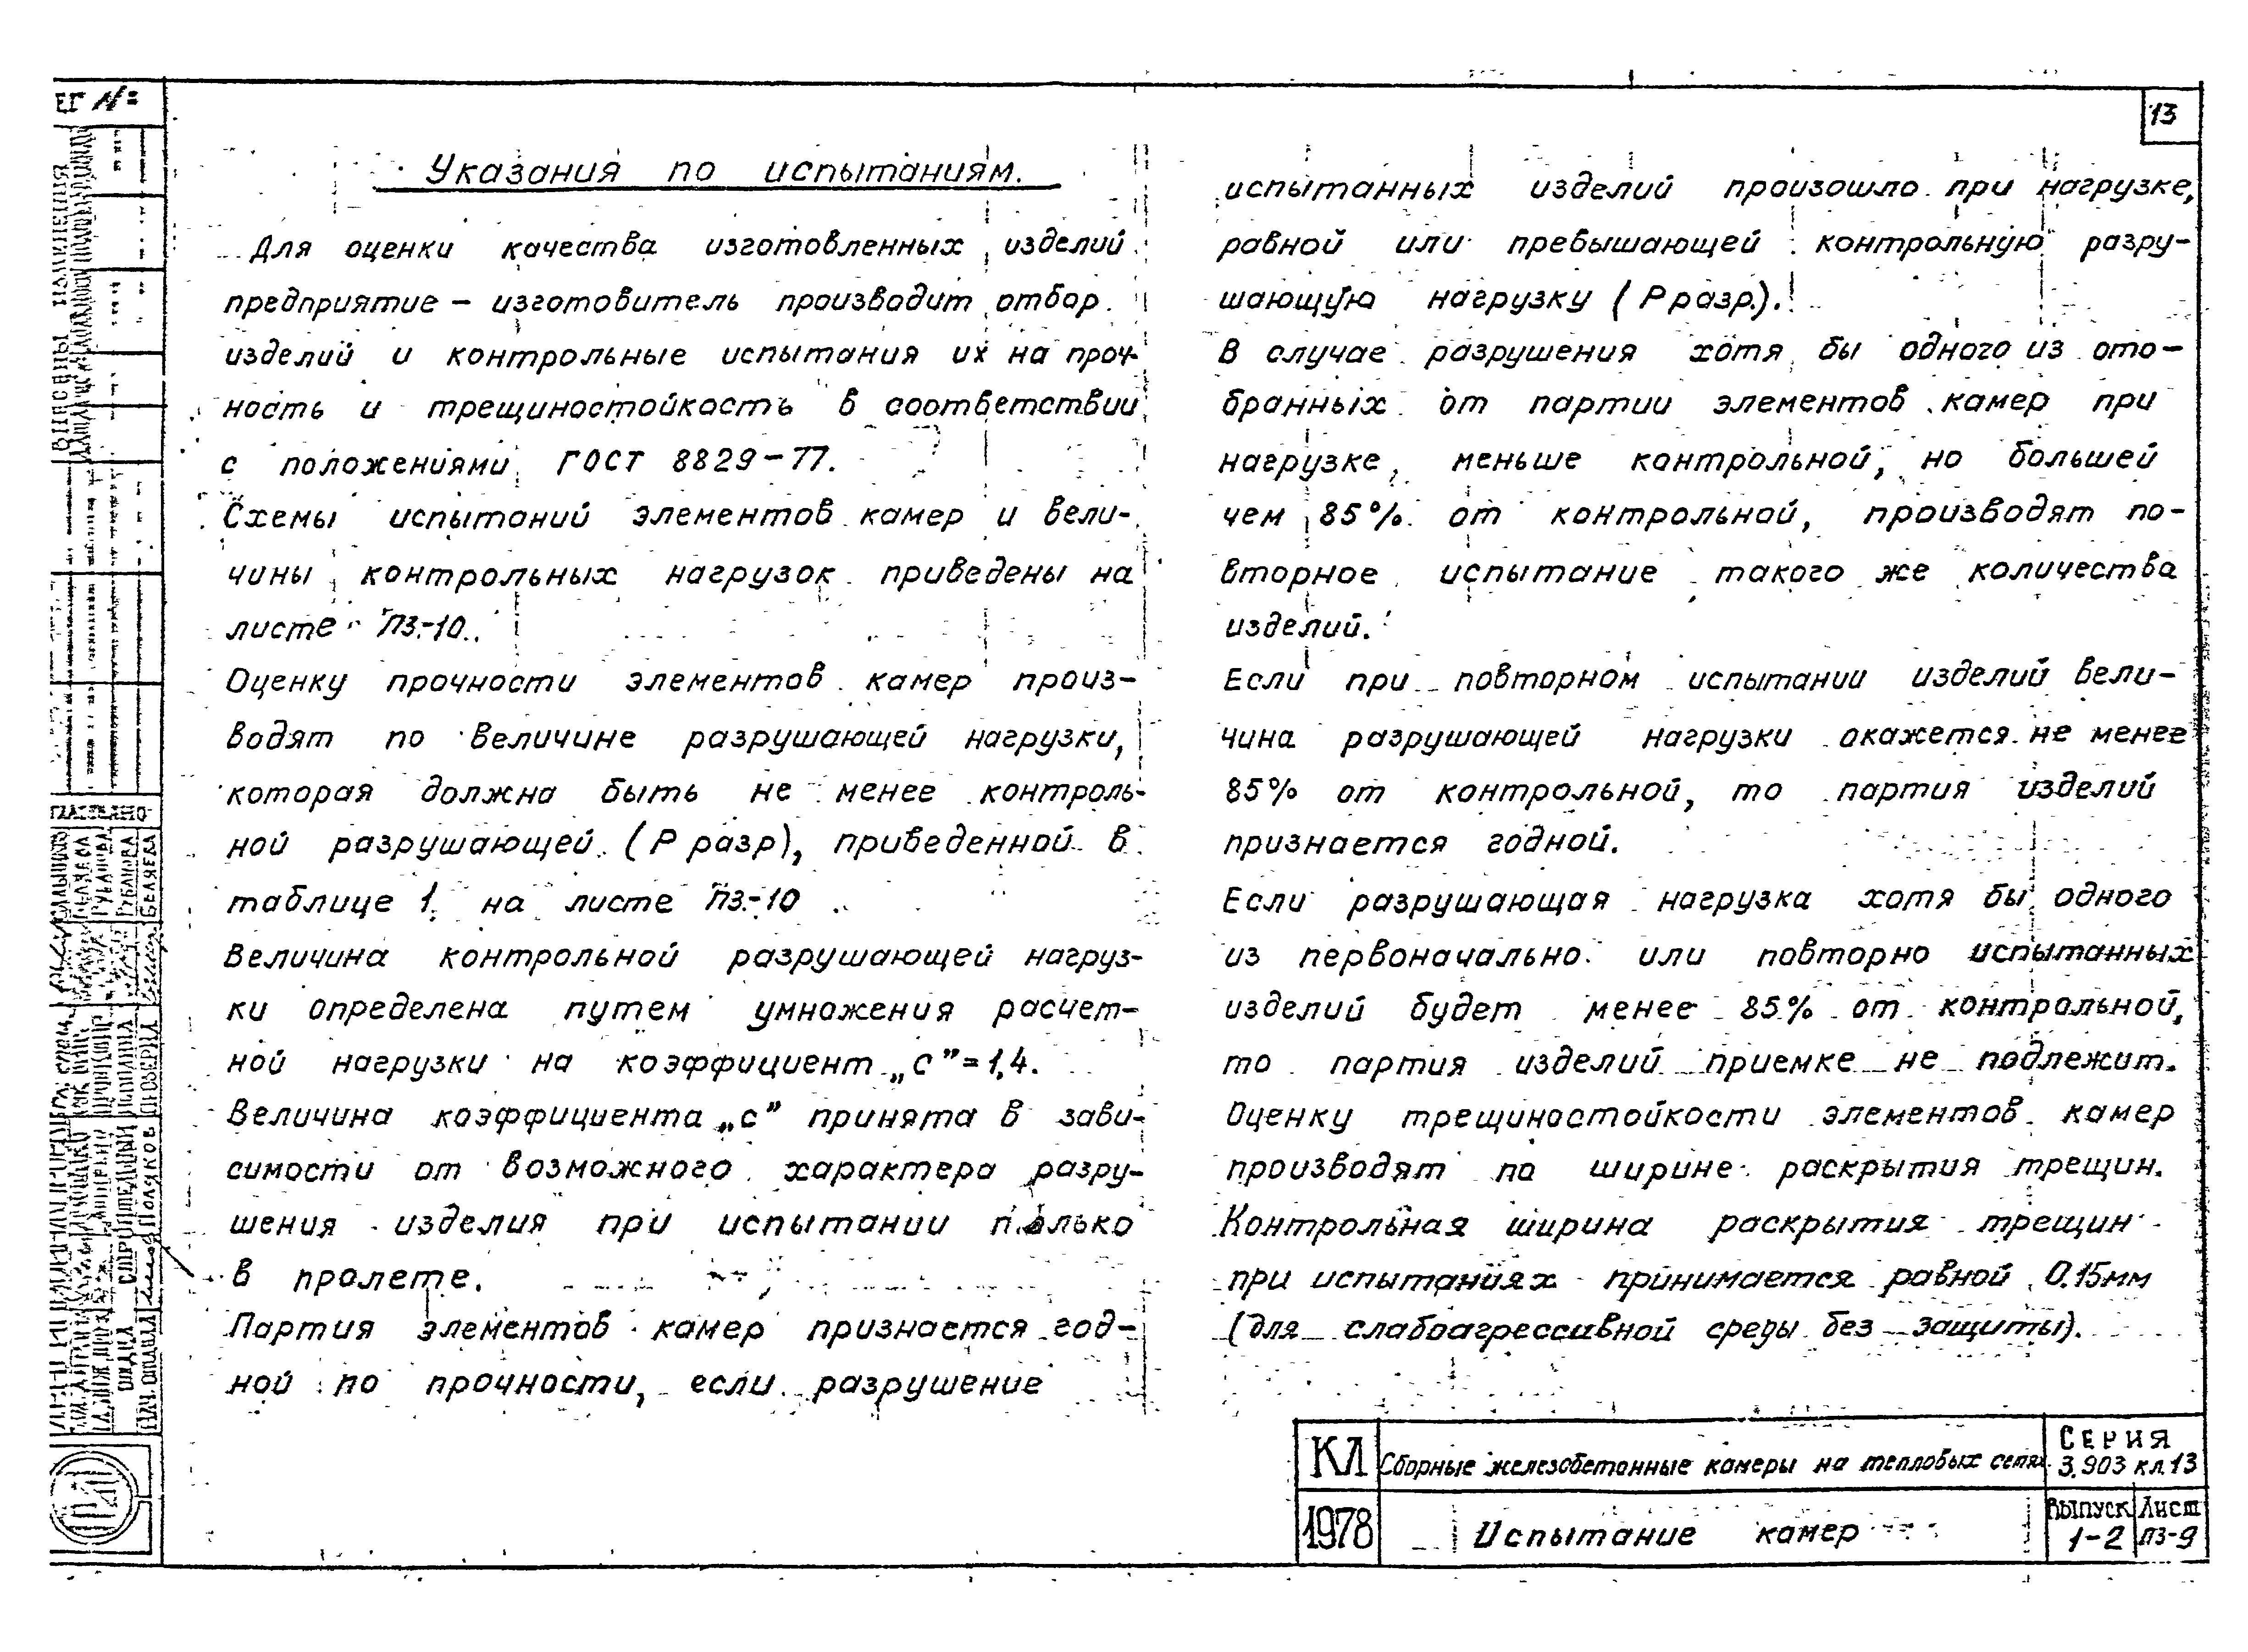 13
Указания по испытаниям.
Для оценки качества изготовленных изделий
предприятие – изготовитель производит отбор
изделий и контрольные испытания их на проч-
ность и трещиностойкость в соответствии
с положениями ГОСТ 8829-77.
Схемы испытаний элементов камер и вели-
чины контрольных нагрузок приведены на
листе ПЗ-10.
Оценку прочности элементов камер произ-
водят по величине разрушающей нагрузки,
которая должна быть не менее контроль-
ной разрушающей (Р разр), приведенной в
таблице 1 на листе ПЗ-10
Величина контрольной разрушающей нагруз-
ки определена путем умножения расчет-
ной нагрузки на коэффициент „с”=1,4.
Величина коэффициента „с” принята в зави-
симости от возможного характера разру-
шения изделия при испытании только
в пролете.
Партия элементов камер признается год-
ной по прочности, если разрушение
испытанных изделий произошло при нагрузке,
равной или превышающей контрольную разру-
шающую нагрузку (Р разр.).
В случае разрушения хотя бы одного из ото-
бранных от партии элементов камер при
нагрузке, меньше контрольной, но большей
чем 85% от контрольной, производят по-
вторное испытание такого же количества
изделий.
Если при повторном испытании изделий вели-
чина разрушающей нагрузки окажется не менее
85% от контрольной, то партия изделий
признается годной.
Если разрушающая нагрузка хотя бы одного
из первоначально или повторно испытанных
изделий будет менее 85% от контрольной,
то партия изделий приемке не подлежит.
Оценку трещиностойкости элементов камер
производят по ширине раскрытия трещин.
Контрольная ширина раскрытия трещин
при испытаниях принимается равной 0.15мм
(для слабоагрессивной среды без защиты).
КЛ
Сборные железобетонные камеры на тепловых сетях
Серия
3.903 кл.13
1978
Испытание камер
Выпуск
1-2
Лист
ПЗ-9
Поляков
Рубанова
Беляева